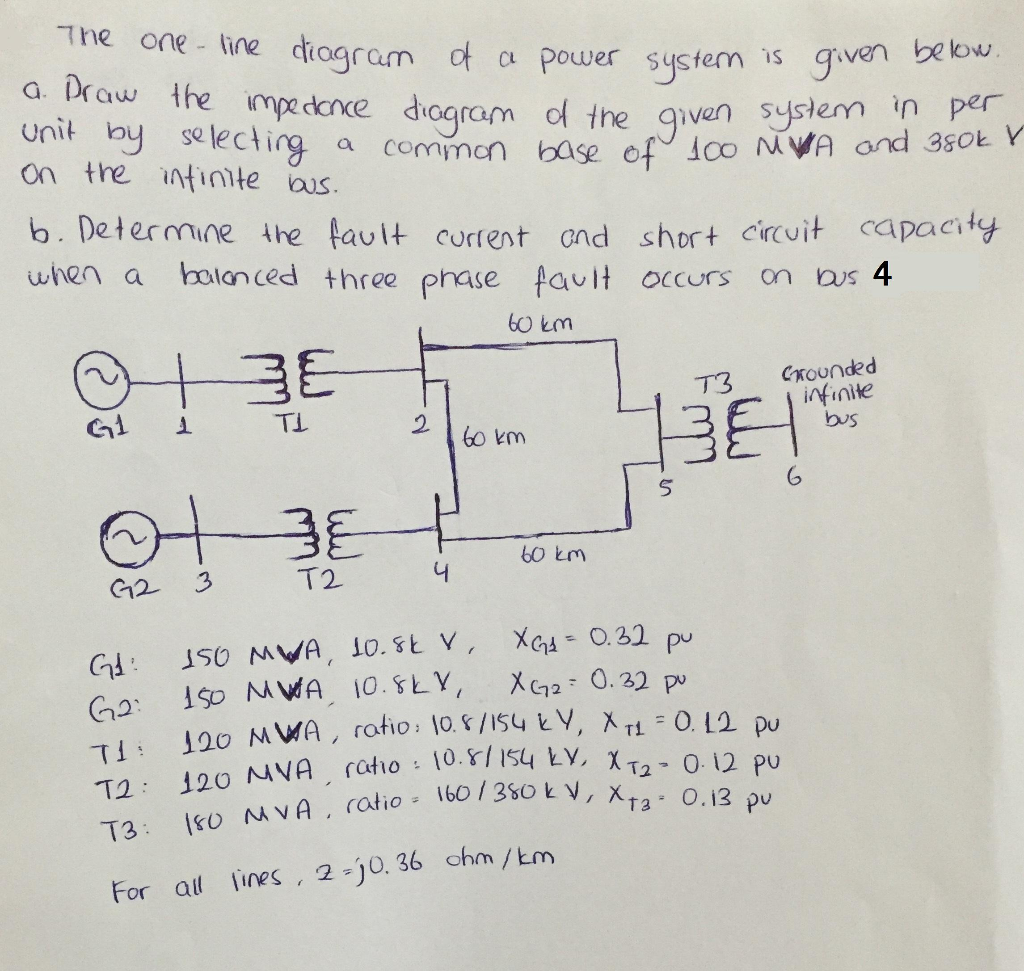 The one-line diagram of a power system is given below.
a. Draw the impedance diagram of the given system in per
unit by selecting a common base of 100 MVA and 380k V
on the infinite bus.
b. Determine the fault current and short circuit capacity
when a balanced three phase fault occurs on bus 4
60 km
G1
1
T1
2
60 km
T3
Grounded
infinite
bus
5
6
G2
3
T2
4
60 km
G1: 150 MVA, 10.8k V, XG1 = 0.32 pu
G2: 150 MVA 10.8kV, XG2 = 0.32 pu
T1: 120 MVA, ratio: 10.8/154 kV, XT1 = 0.12 pu
T2: 120 MVA, ratio: 10.8/154 kV, XT2 = 0.12 pu
T3: 180 MVA, ratio = 160/380 kV, XT3 = 0.13 pu
For all lines, z=j0.36 ohm/km